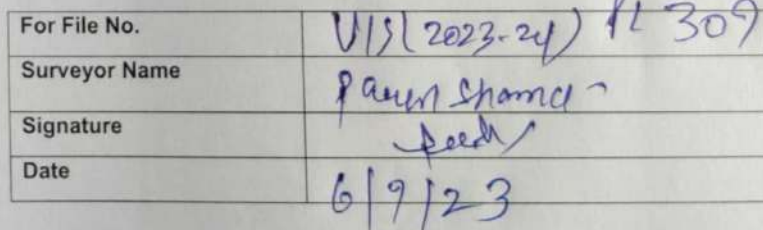 For File No. VIS(2023-24) PL 309
Surveyor Name Pawan Sharma
Signature
Date 6/9/23